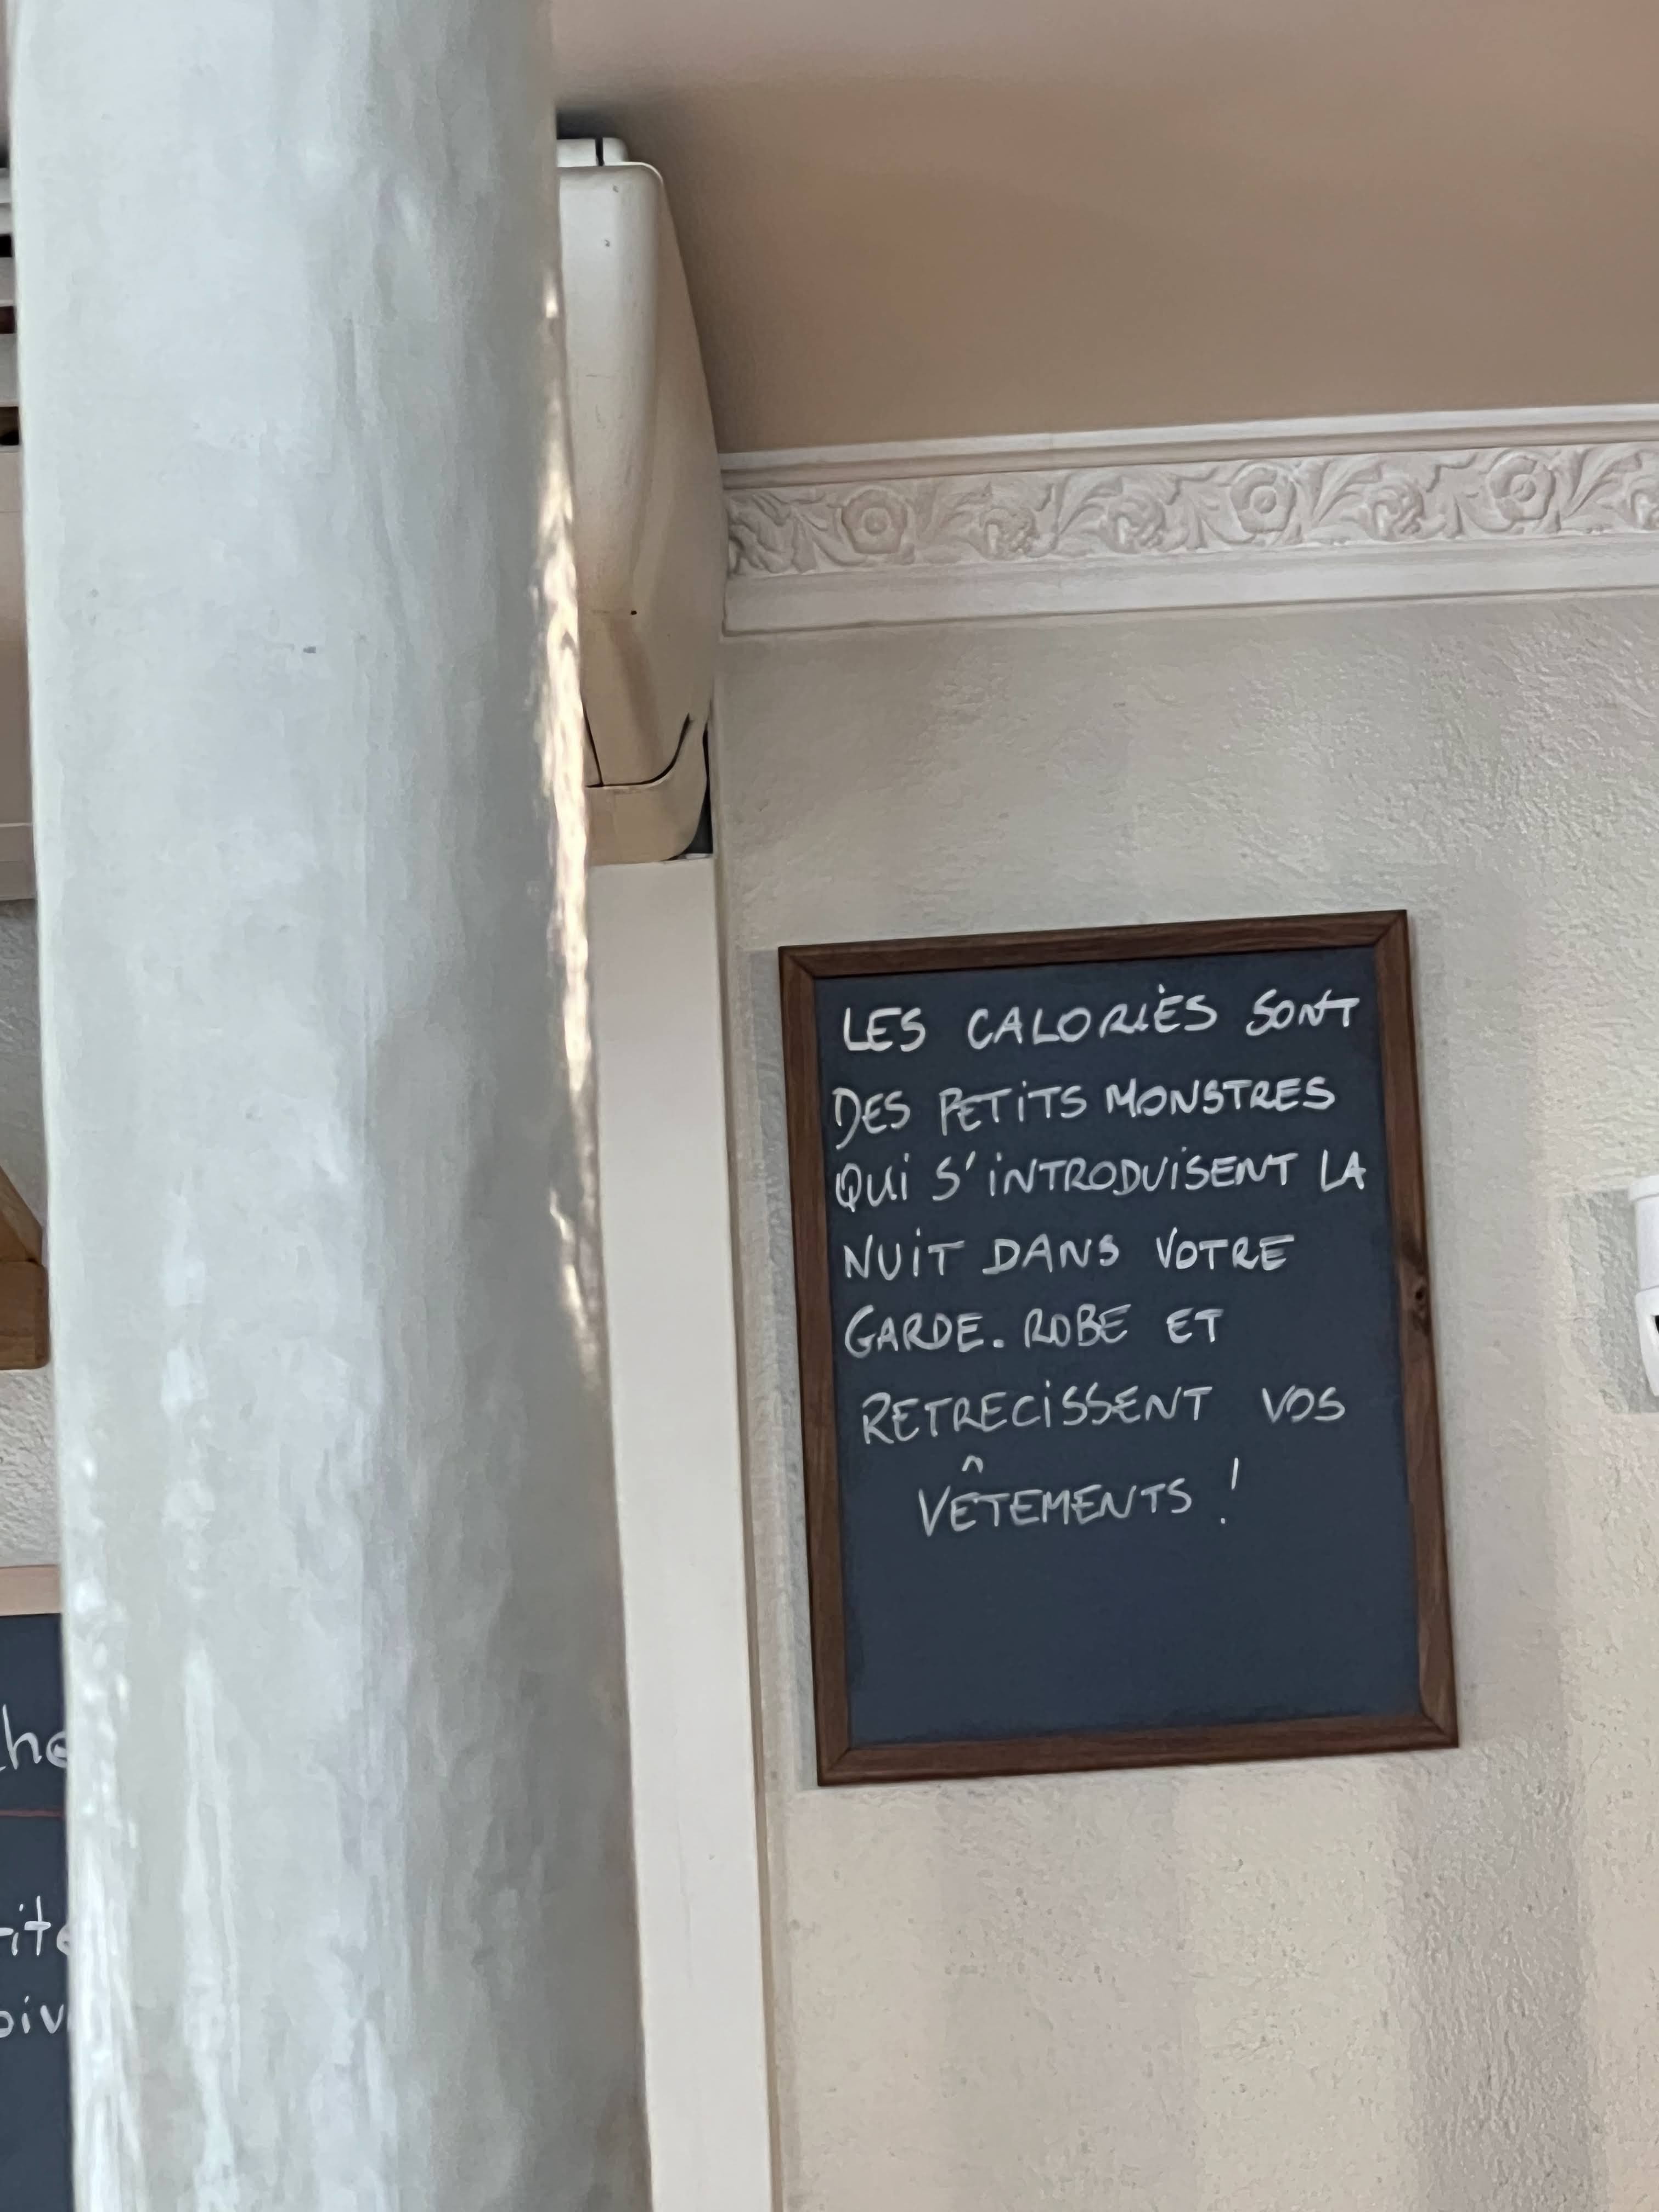 LES CALORIES SONT
DES PETITS MONSTRES
QUI S'INTRODUISENT LA
NUIT DANS VOTRE
GARDE-ROBE ET
RETRECISSENT VOS
VÊTEMENTS !